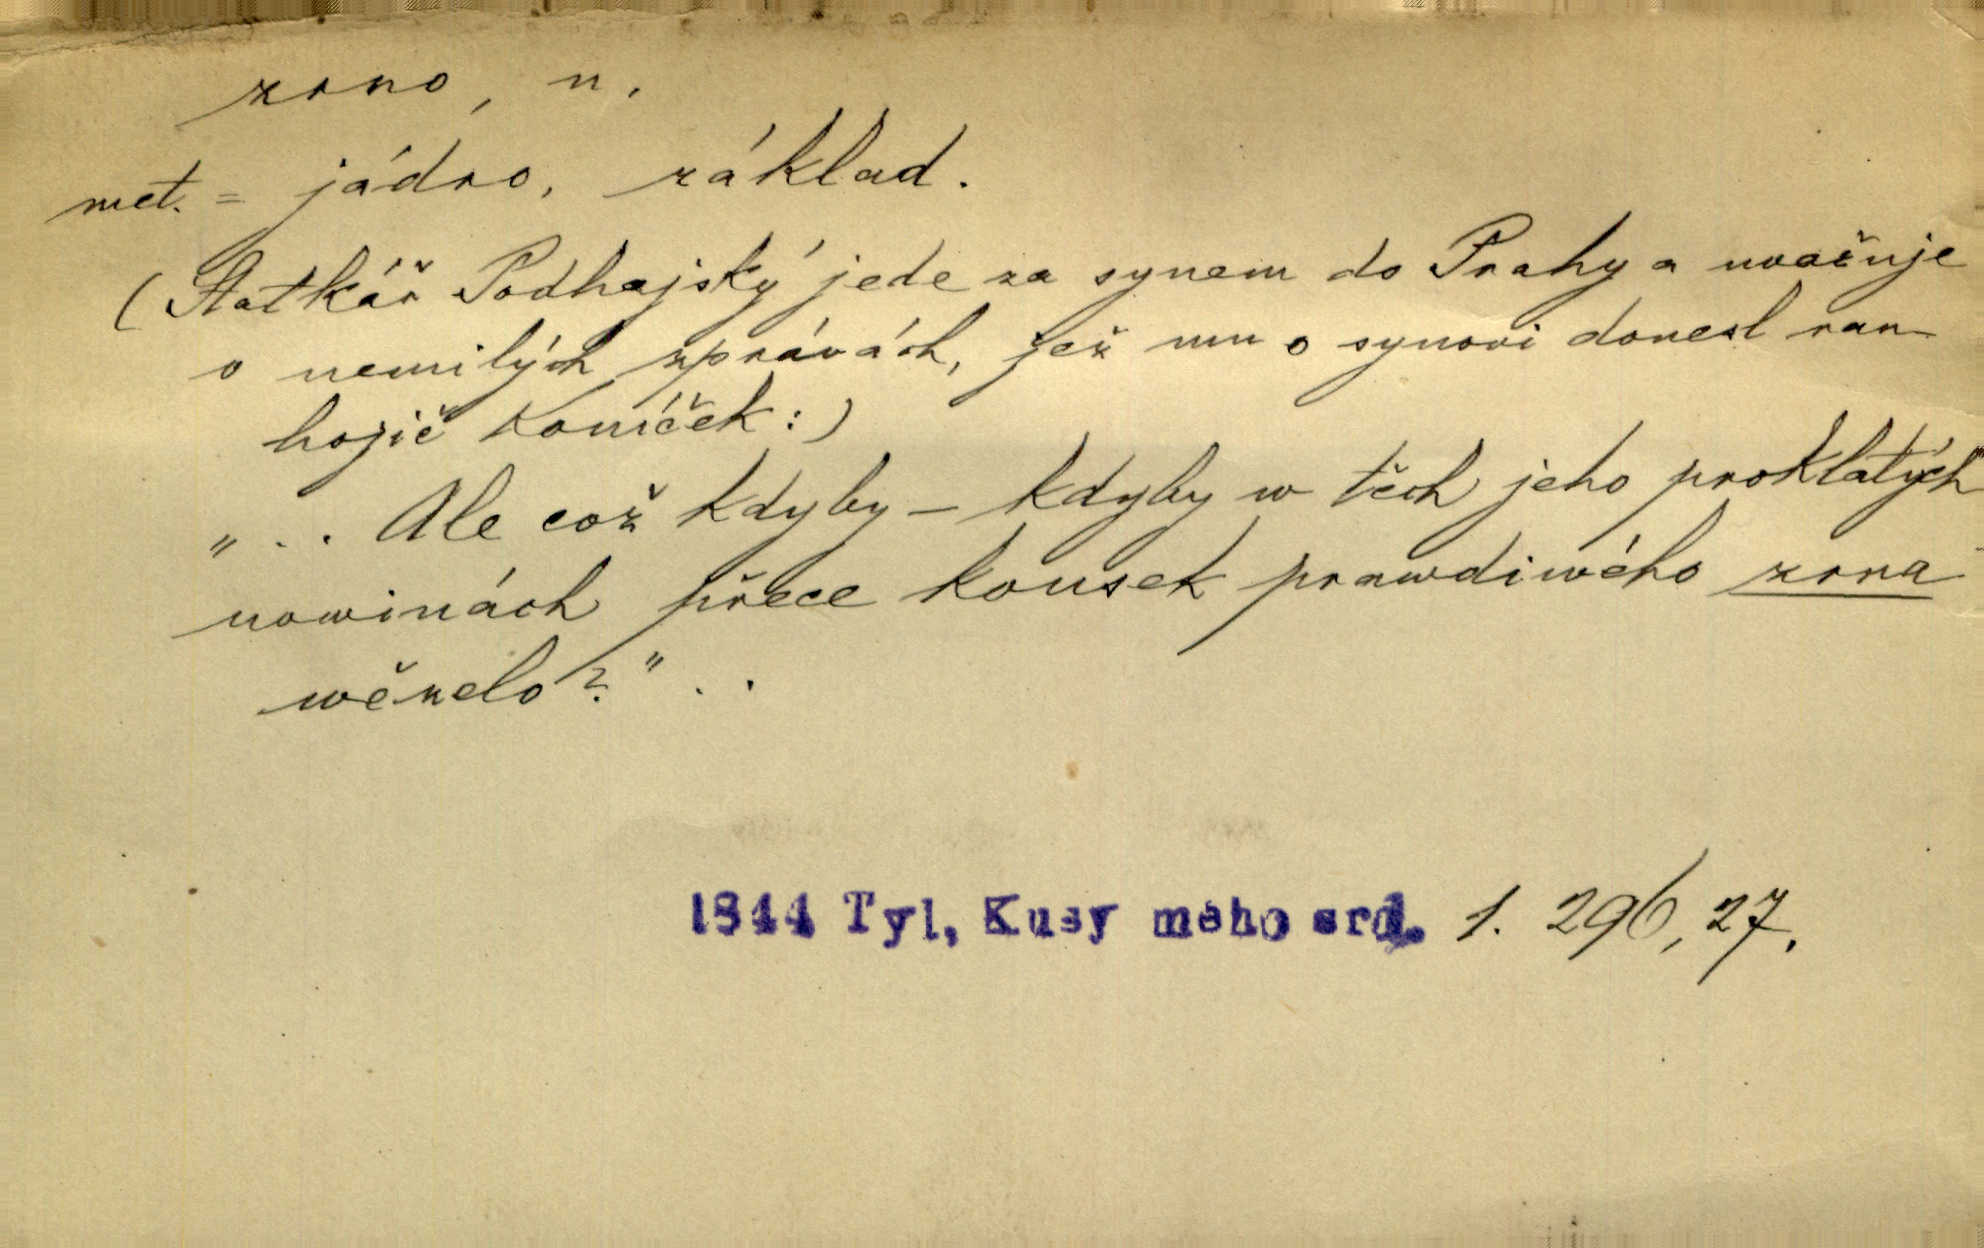 zrno, n.
met. = jádro, základ.
(Statkář Podhajský jede za synem do Prahy a uvažuje
o nemilých zprávách, jež mu o synovi donesl ran-
hojič Koníček:)
„ . . Ale což kdyby – kdyby w těch jeho proklatých
nowinách přece kousek prawdiwého zrna
wězelo?" . .
1844 Tyl, Kusy mého srd. 1. 296, 27.